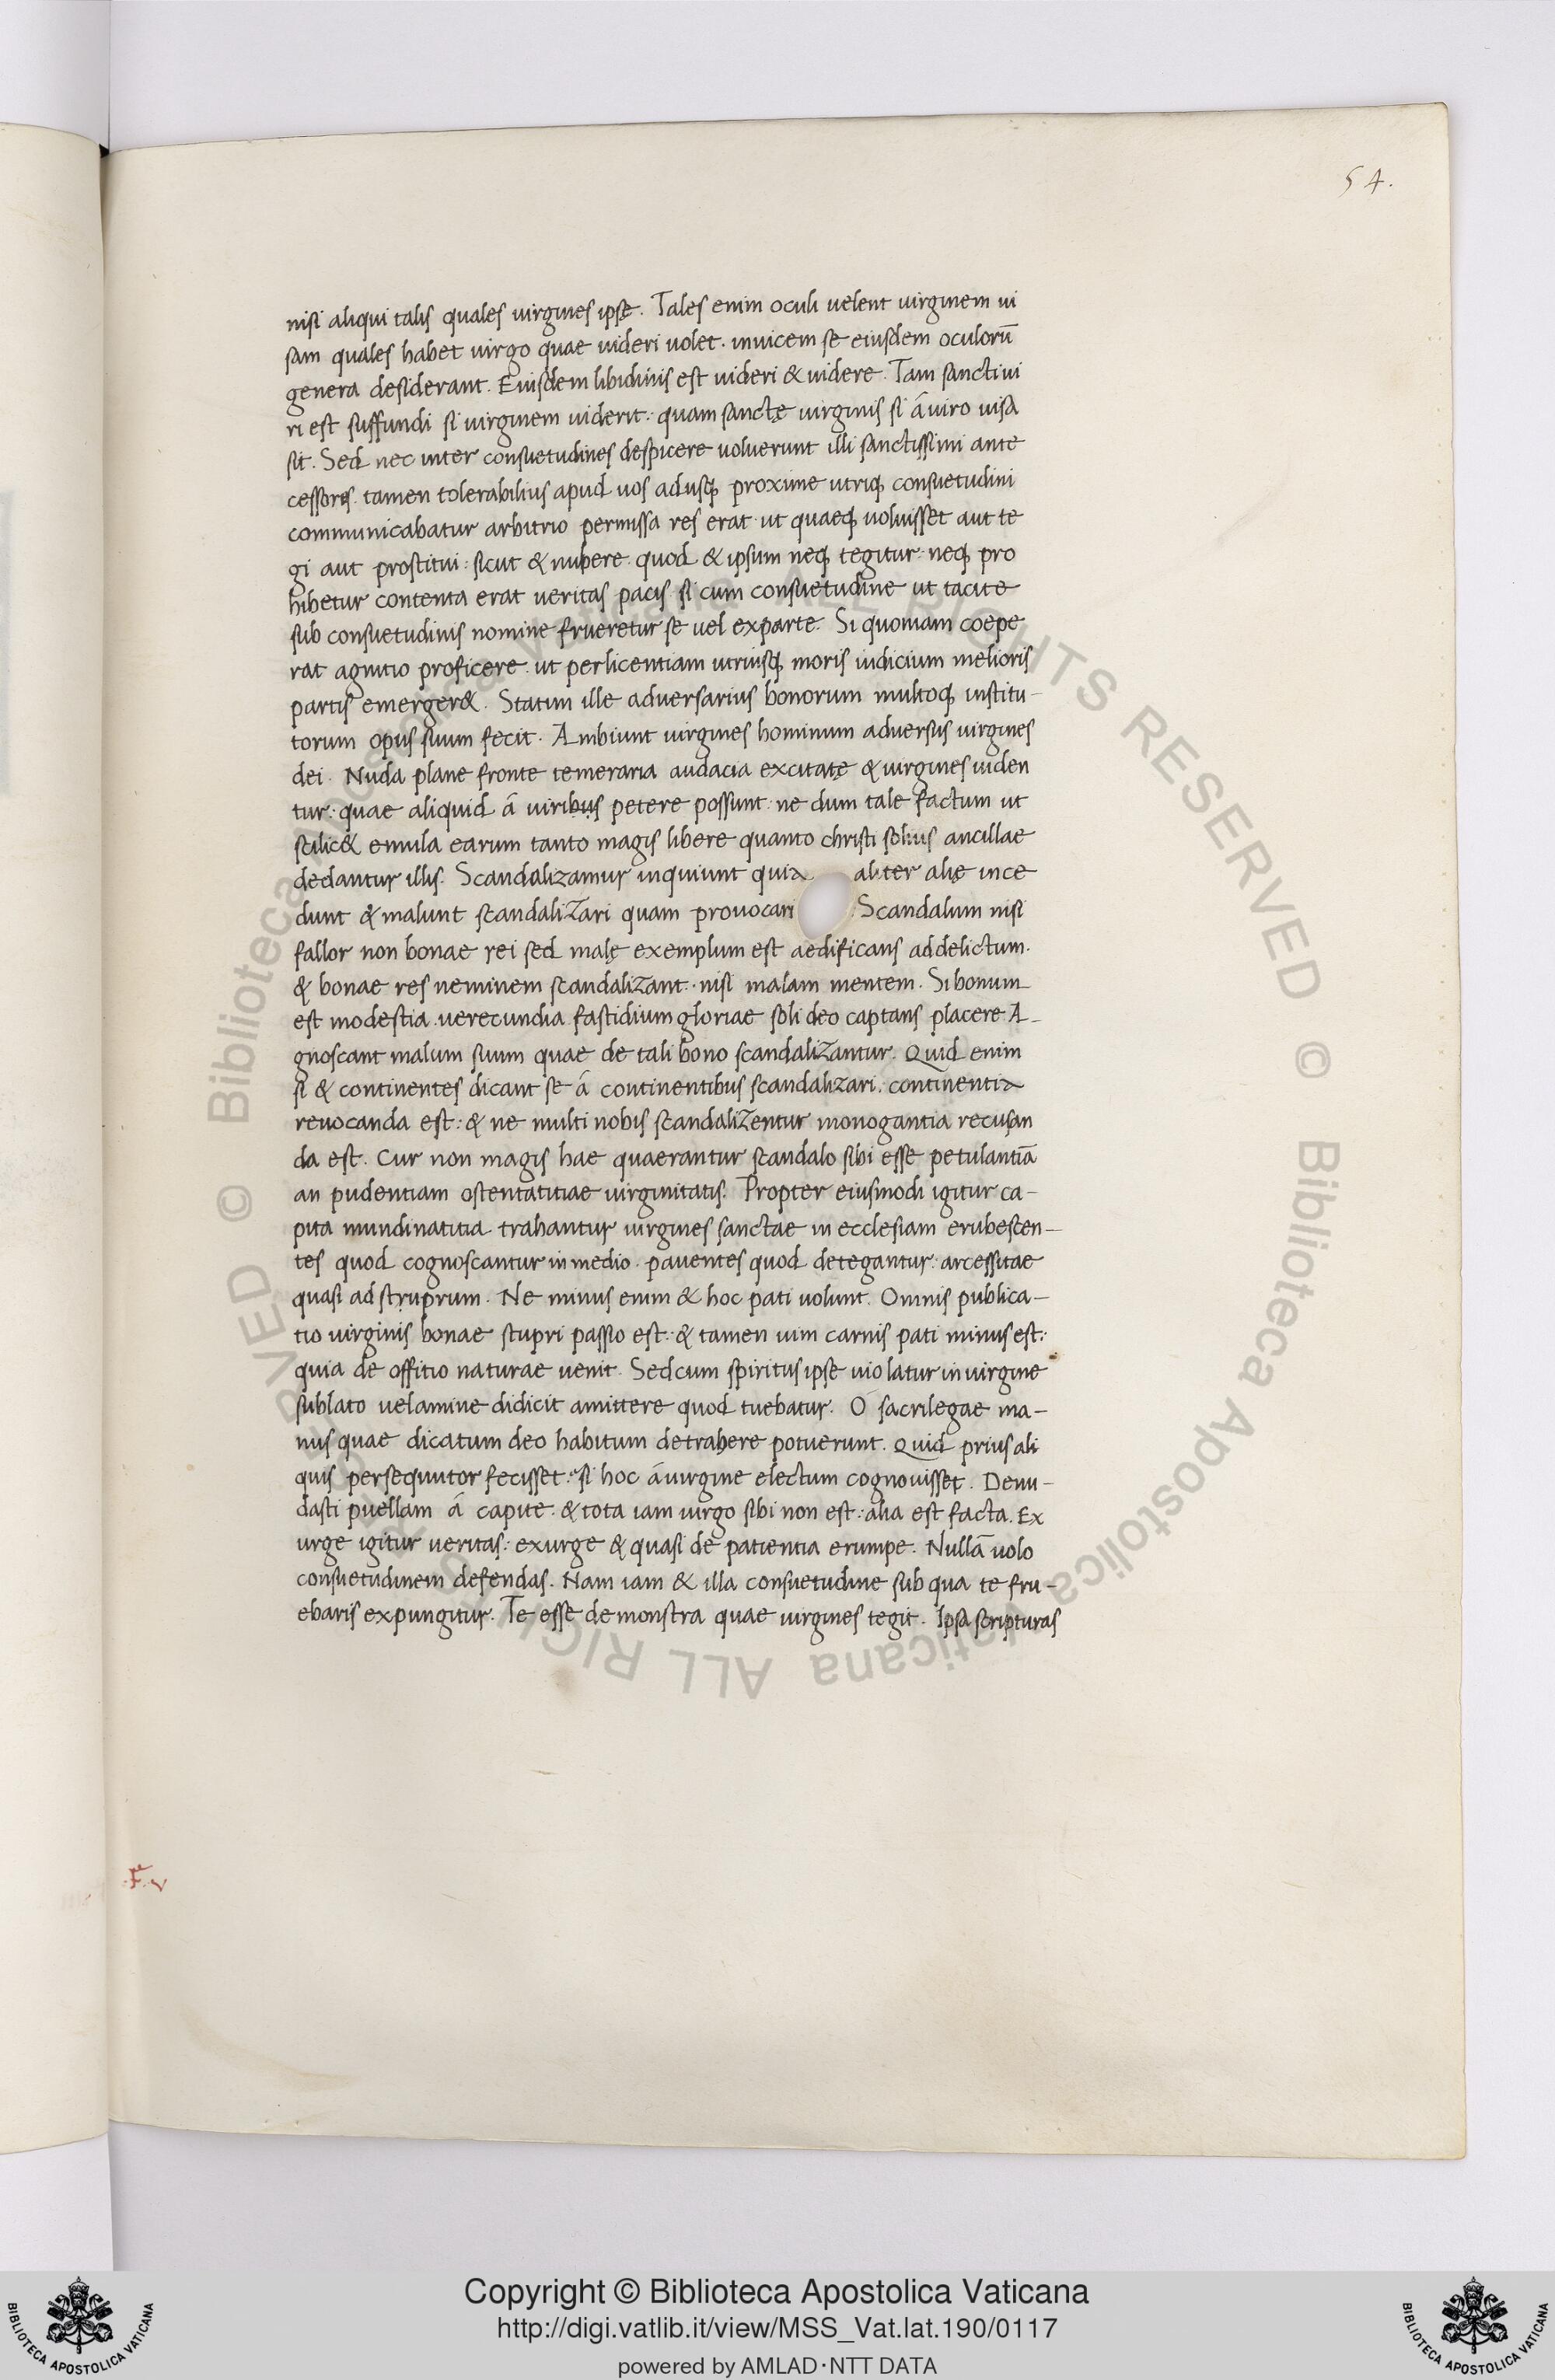 54.
nisi aliqui talis quales virgines ipsę. Tales enim oculi velent virginem ui
sam quales habet virgo quae uideri uolet. inuicem se eiusdem oculorū
genera desiderant. Eiusdem libidinis est uideri & uidere. Tam sancti ui
ri est suffundi si virginem uiderit: quam sanctę virginis si á uiro uisa
sit. Sed nec inter consuetudines despicere uoluerunt illi sanctissimi ante
cessores. tamen tolerabilius apud uos ad usq proxime utriq consuetudini
communicabatur arbitrio permissa res erat. ut quaeq uoluisset aut te
gi aut prostitui: sicut & nubere. quod & ipsum neq tegitur: neq pro
hibetur contenta erat veritas pacis si cum consuetudine ut tacite
sub consuetudinis nomine frueretur se uel ex parte. Si quoniam coepe
rat agnitio proficere. ut per licentiam utriusq moris iudicium melioris
partis emerger&. Statim ille adversarius bonorum multoq institu-
torum opus suum fecit. Ambiunt virgines hominum adversus virgines
dei. Nuda plane fronte temeraria audacia excitatę & virgines uiden
tur: quae aliquid á viribus petere possunt. ne dum tale factum ut
scilic& emula earum tanto magis libere quanto christi solius ancillae
dedantur illis. Scandalizamur inquiunt quia aliter alię ince
dunt & malunt scandalizari quam prouocari. Scandalum nisi
fallor non bonae rei sed malę exemplum est aedificans ad delictum.
& bonae res neminem scandalizant. nisi malam mentem. Si bonum
est modestia verecundia fastidium gloriae soli deo captans placere A-
gnoscant malum suum quae de tali bono scandalizantur. Quid enim
si & continentes dicant se á continentibus scandalizari. continentia
reuocanda est: & ne multi nobis scandalizentur monogantia recusan
da est. Cur non magis hae quaerantur scandalo sibi esse petulantiā
an pudentiam ostentatitiae virginitatis. Propter eiusmodi igitur ca-
pita mundinatitia trahantur virgines sanctae in ecclesiam erubescen-
tes quod cognoscantur in medio. pauentes quod detegantur: arcessitae
quasi ad struprum. Ne minus enim & hoc pati uolunt. Omnis publica-
tio virginis bonae stupri passio est: & tamen uim carnis pati minus est:
quia de offitio naturae uenit. Sed cum spiritus ipse uiolatur in virgine
sublato uelamine didicit amittere quod tuebatur. O sacrilegae ma-
nus quae dicatum deo habitum detrahere potuerunt. Quid prius ali
quis persequutor fecisset: si hoc á virgine electum cognouisset. Denu-
dasti puellam á capite. & tota iam virgo sibi non est: alia est facta. Ex
urge igitur veritas: exurge & quasi de patientia erumpe. Nullā uolo
consuetudinem defendas. Nam iam & illa consuetudine sub qua te fru-
ebaris expungitur. Te esse demonstra quae virgines tegit. Ipsa scripturas
.F. v
© Biblioteca Apostolica Vaticana ALL RIGHTS RESERVED © Biblioteca Apostolica Vaticana ALL RIGHTS RESERVED
Copyright © Biblioteca Apostolica Vaticana
http://digi.vatlib.it/view/MSS_Vat.lat.190/0117
powered by AMLAD·NTT DATA
BIBLIOTECA APOSTOLICA VATICANA
BIBLIOTECA APOSTOLICA VATICANA